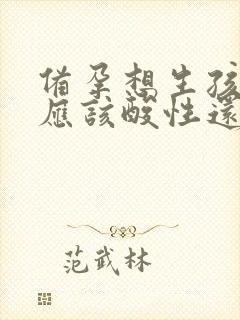 備孕想生孩
應該酸性還
范武林